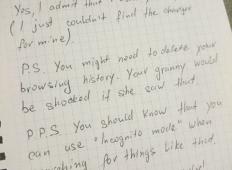 Yes, I admit that I
(I just couldn't find the charger
for mine).
P.S. You might need to delete your
browsing history. Your granny would
be shocked if she saw that
P.P.S. You should know that you
can use "Incognito mode" when
for things like that.